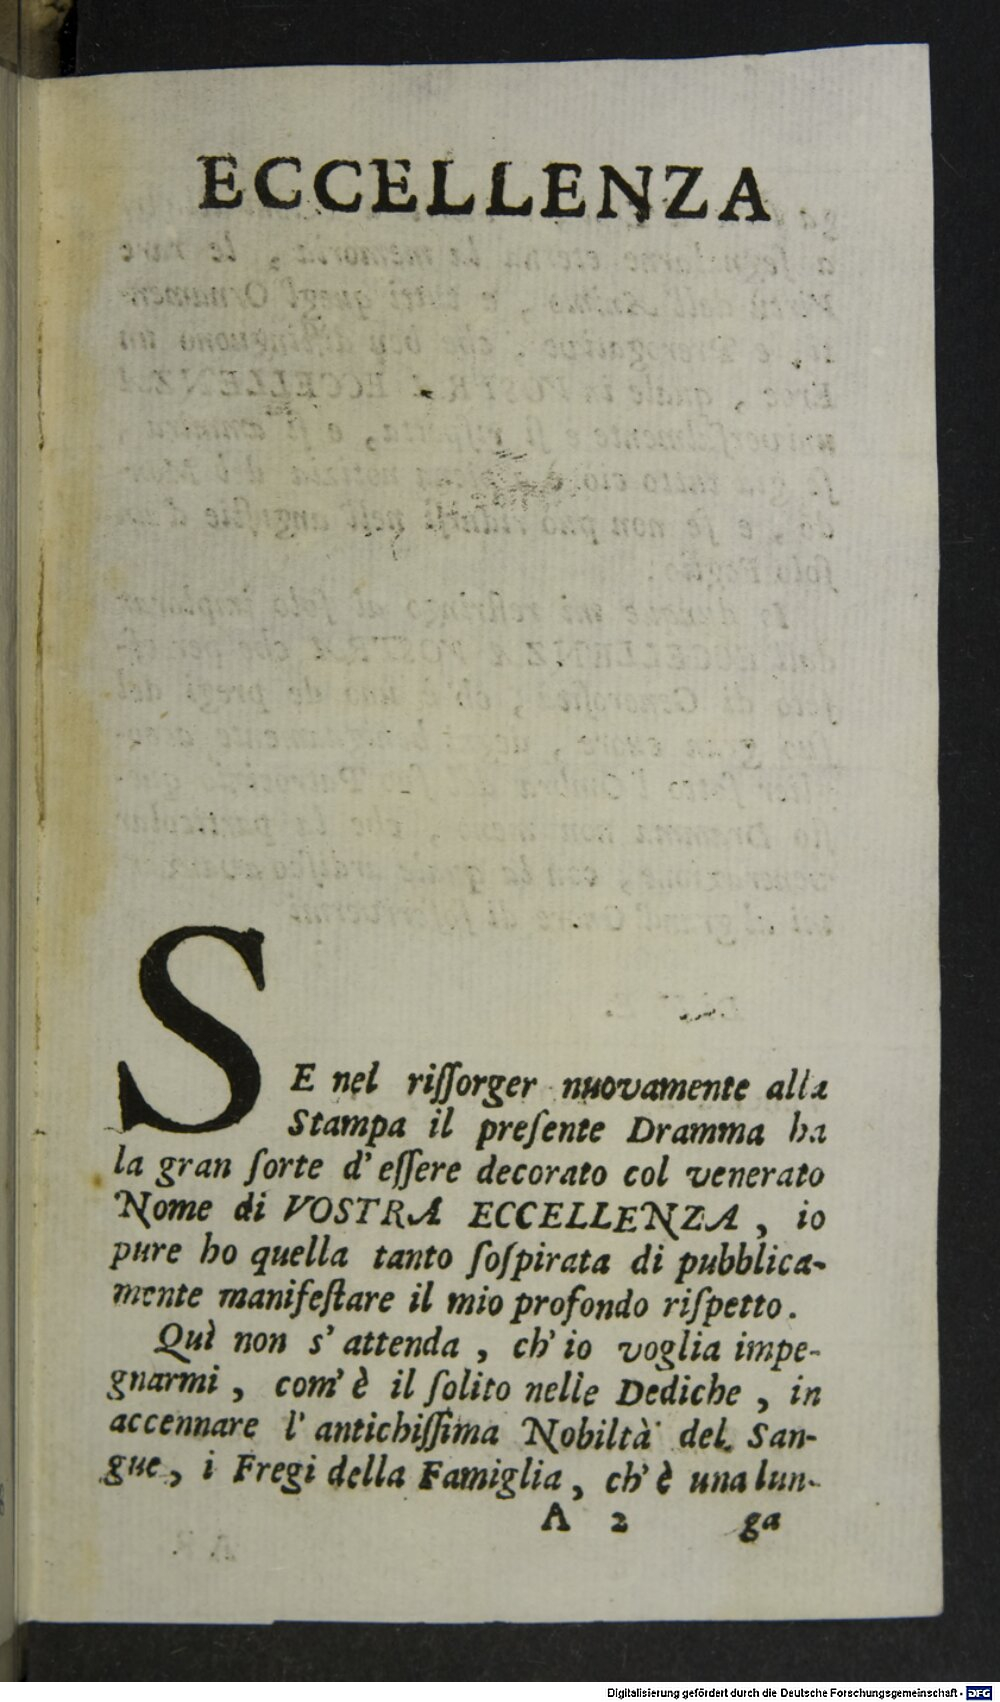 ECCELLENZA
SE nel riſſorger nuovamente alla
Stampa il preſente Dramma ha
la gran ſorte d' eſſere decorato col venerato
Nome di VOSTRA ECCELLENZA, io
pure ho quella tanto ſoſpirata di pubblica-
mente manifeſtare il mio profondo riſpetto.
Quì non s' attenda, ch' io voglia impe-
gnarmi, com' è il ſolito nelle Dediche, in
accennare l' antichiſſima Nobiltà del San-
gue, i Fregi della Famiglia, ch' è una lun-
A 2 ga
Digitalisierung gefördert durch die Deutsche Forschungsgemeinschaft - DFG